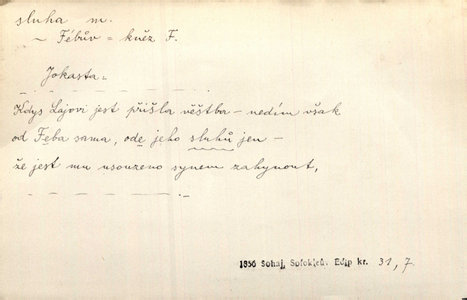 sluha m.
~ Fébův = kněz F.
Jokasta:
Kdys Lajovi jest přišla věštba – nedím však
od Feba sama, ode jeho sluhů jen –
že jest mu usouzeno synem zahynout,
1856 Šohaj, Sofoklův. Edip kr. 31, 7